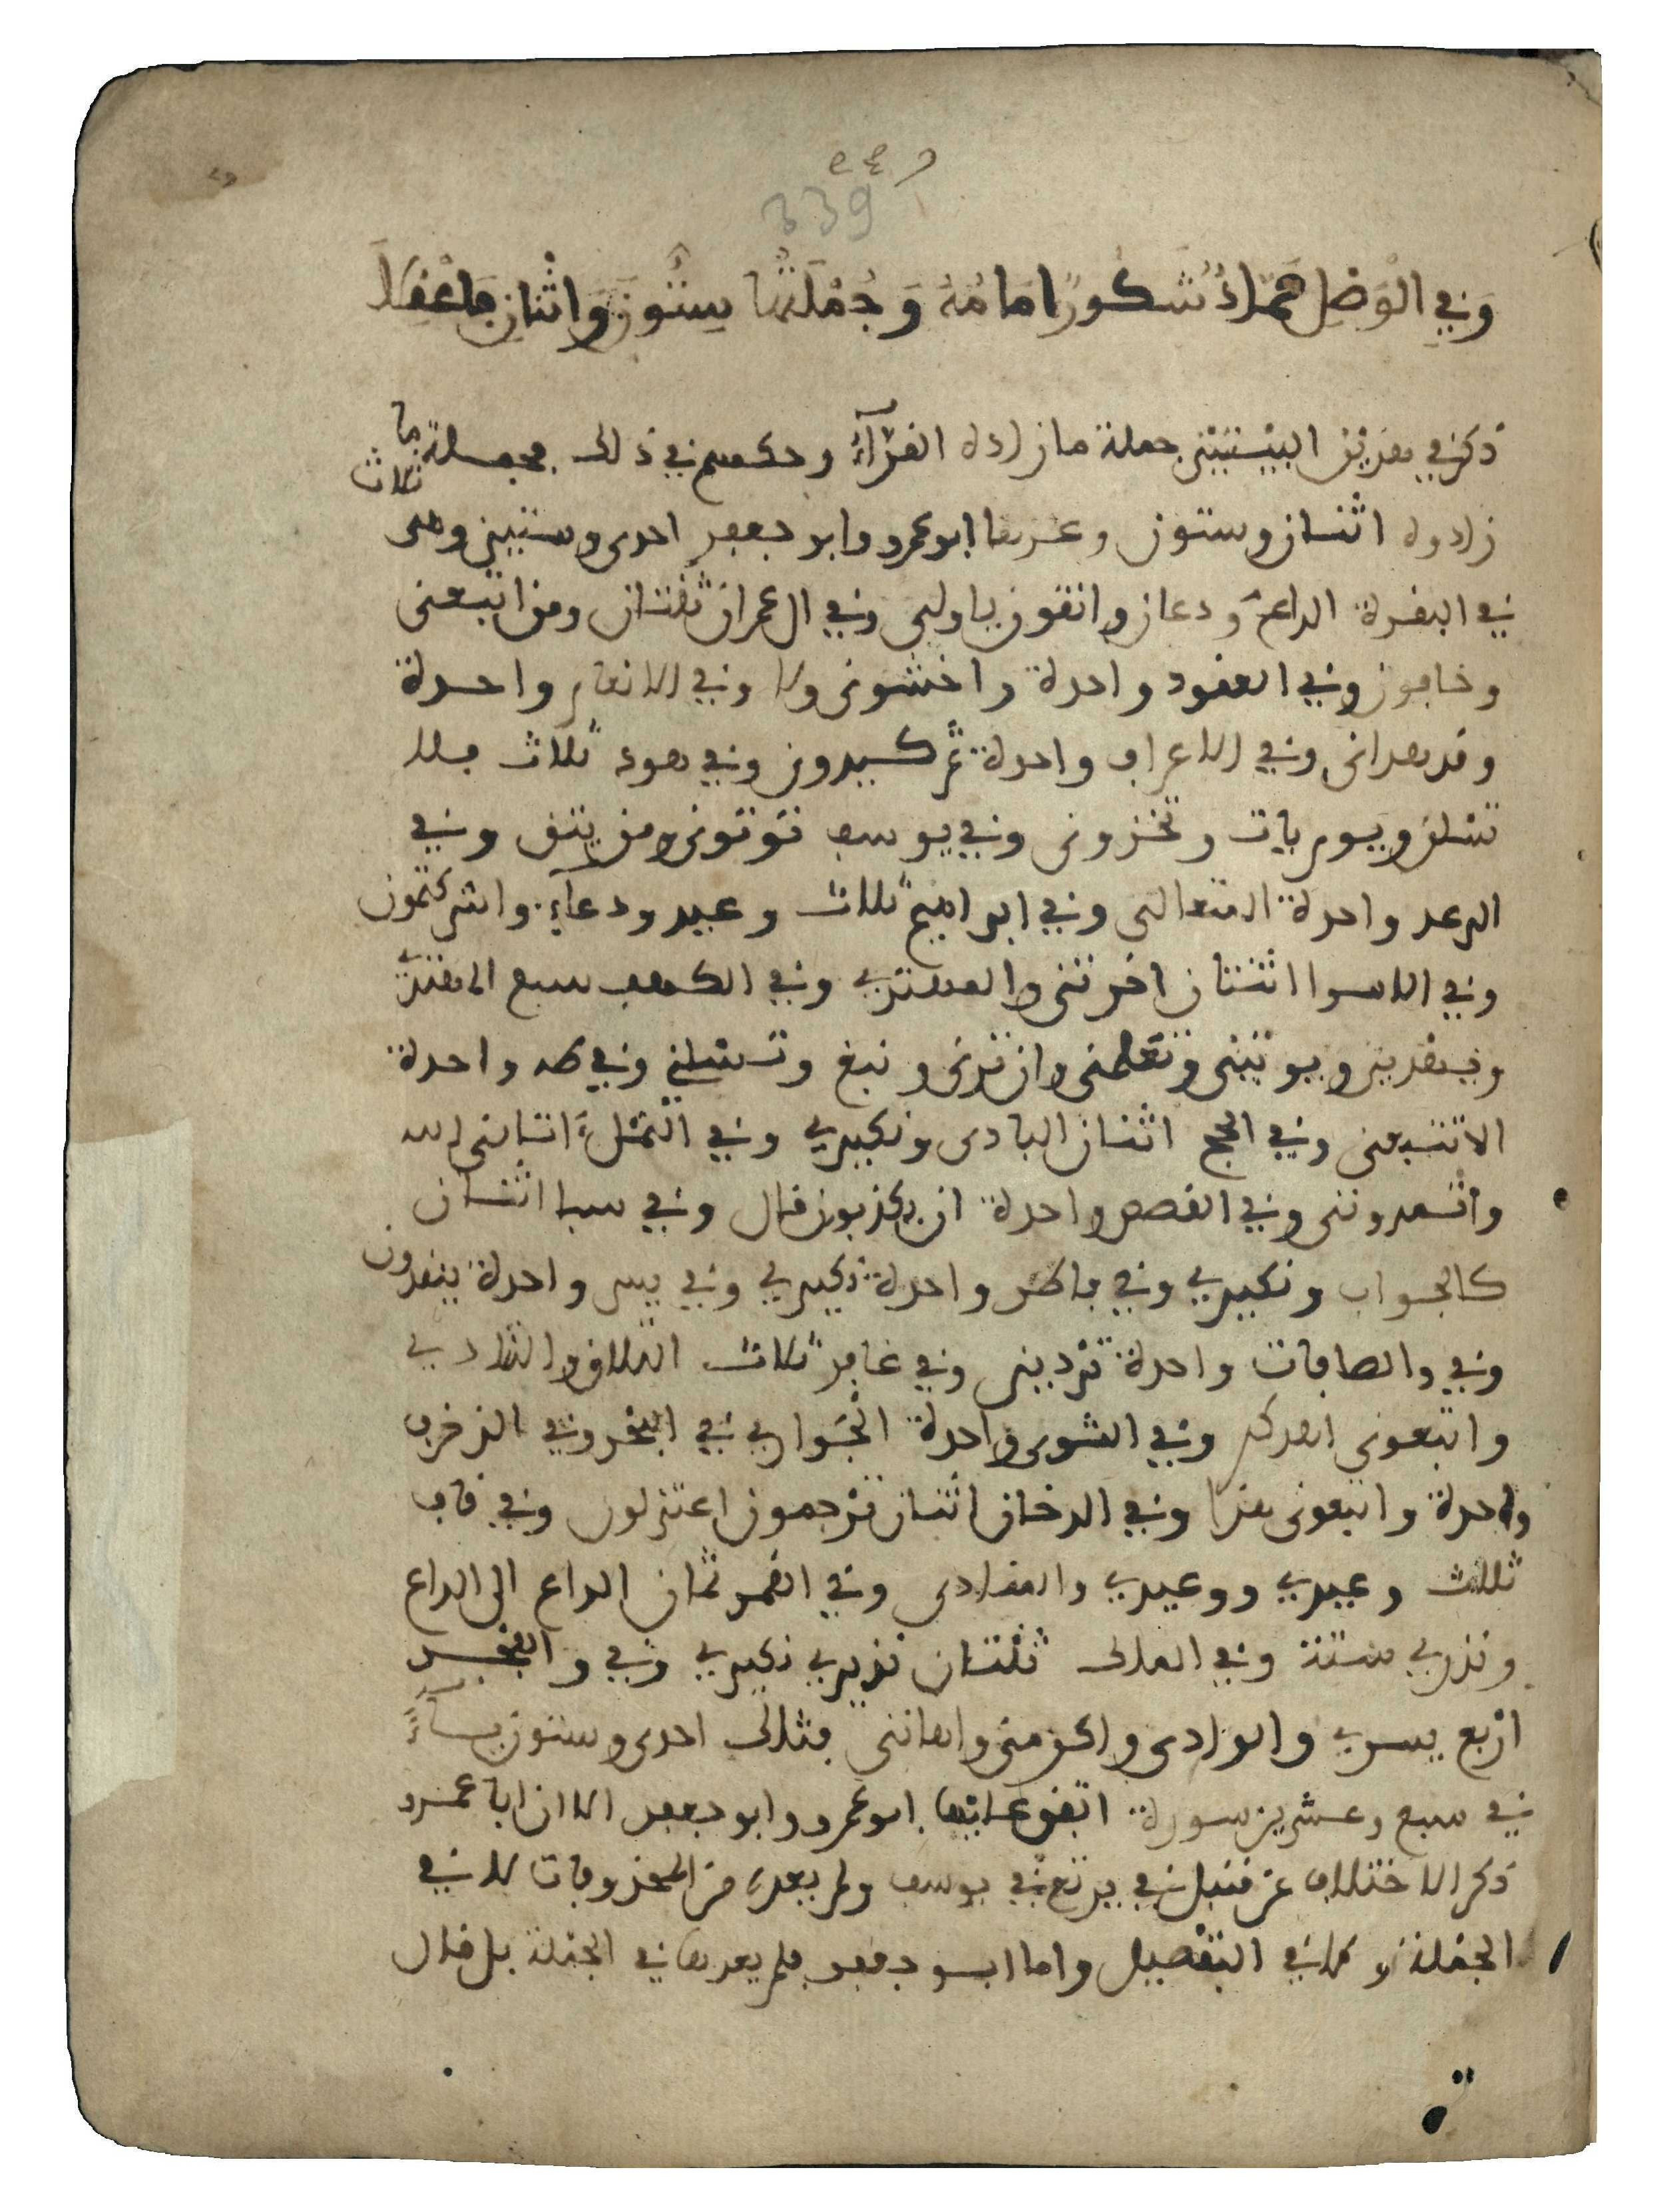 339
وفي الوصل حماد شكور امامه وجملتها ستون واثنان فاعقلا
ذكر في هذين البيتين جملة ما زاده القرآء وحكمهم في ذلك فجملة ما
زادوه اثنان وستون وعدها ابو عمرو وابو جعفر احدى وستين وهى ثلاث
في البقرة الداع ودعان واتقون ياولى وفي ال عمران ثنتان ومن اتبعنى
وخافون وفي العقود واحدة واخشونى ولا وفي الانعام واحدة
وقد هدانى وفي الاعراف واحدة ثم كيدون وفي هود ثلاث فلا
تسلن ويوم يات وتخزونى وفي يوسف توتونى ومن يتق وفي
الرعد واحدة المتعالى وفي ابراهيم ثلاث وعيد ودعآء واشركتمون
وفي الاسرا اثنتان اخرتنى والمهتدي وفي الكهف سبع المهتدي
ويهدين ويوتينى وتعلمنى وان ترنى ونبغ وتسئلني وفي طه واحدة
الاتتبعنى وفي الحج اثنتان البادى ونكيري وفي النمل اتانى الله
واتمدوننى وفي القصص واحدة ان يكذبون قال وفي سبا اثنتان
كالجواب ونكيري وفي فاطر واحدة نكيري وفي يس واحدة ينقذون
وفي والصافات واحدة تردينى وفي غافر ثلاث التلاق والتنادي
واتبعونى اهدكم وفي الشورى واحدة الجواري في البحر وفي الزخرف
واحدة واتبعونى هذا وفي الدخان اثنتان ترجمون اعتزلون وفي قاف
ثلث وعيدي ووعيدي والمنادى وفي القمر ثمان الداع الى الداع
ونذري ستة وفي الملك ثنتان نذيري نكيري وفي والفجر
اربع يسري والوادى واكرمنى واهاننى فتلك احدى وستون يآء
في سبع وعشرين سورة اتفق عليها ابو عمرو وابو جعفر الا ان ابا عمرو
ذكر الاختلاف عن قنبل في يرتع في يوسف ولم يعده من المحذوفات لا في
الجملة ولا في التفصيل واما ابو جعفر فلم يعدها في الجملة بل قال